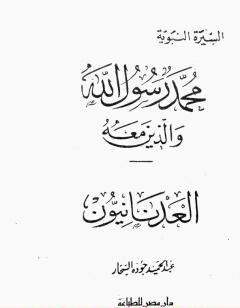 السيرة النبوية
محمد رسول الله
والذين معه
العدنانيون
عبد الحميد جوده السحار
دار مصر للطباعة